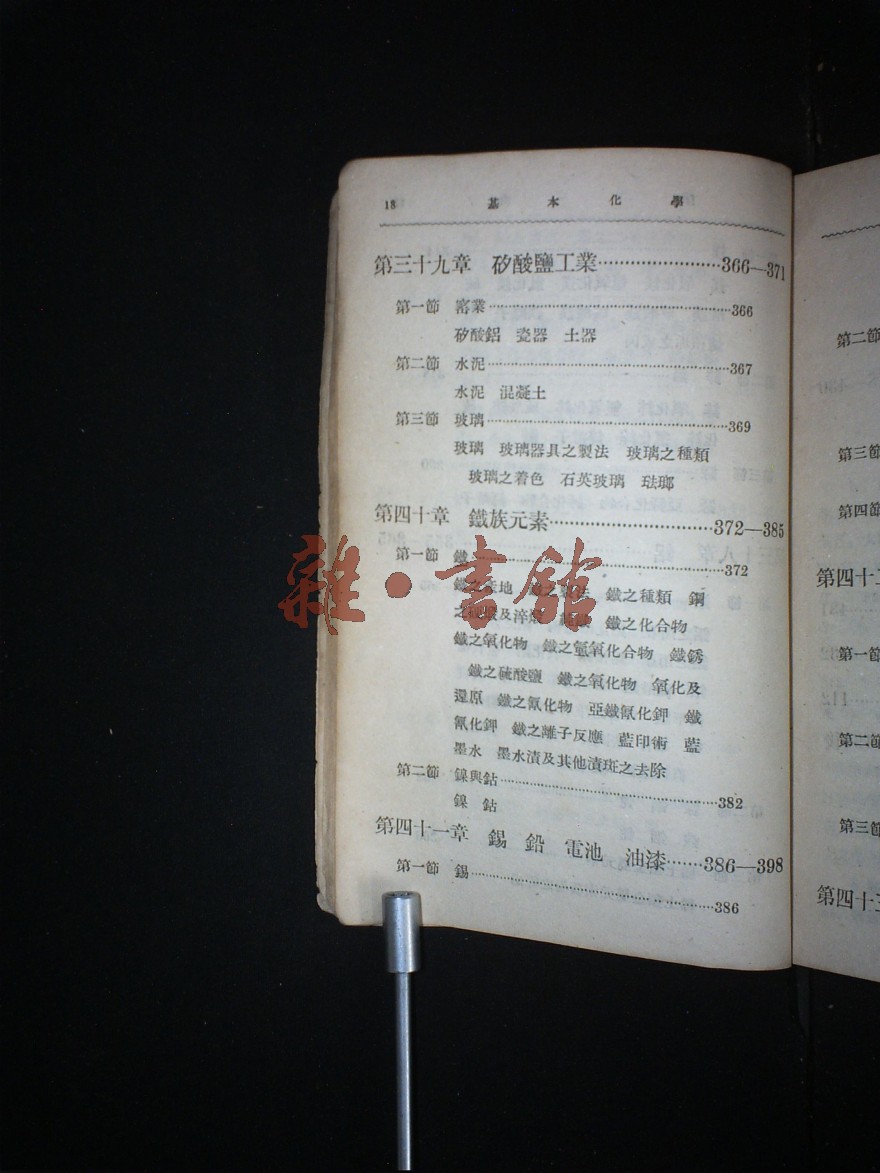 18 基本化學
第三十九章 矽酸鹽工業……………………366—371
第一節 窰業……………………366
矽酸鋁 瓷器 土器
第二節 水泥……………………367
水泥 混凝土
第三節 玻璃……………………369
玻璃 玻璃器具之製法 玻璃之種類
玻璃之着色 石英玻璃 琺瑯
第四十章 鐵族元素……………………372—385
第一節 鐵……………………372
鐵之產地 鐵之製法 鐵之種類 鋼
之 及淬 鐵之化合物
鐵之氧化物 鐵之氫氧化合物 鐵銹
鐵之硫酸鹽 鐵之氧化物 氧化及
還原 鐵之氰化物 亞鐵氰化鉀 鐵
氰化鉀 鐵之離子反應 藍印術 藍
墨水 墨水漬及其他漬斑之去除
第二節 鎳與鈷……………………382
鎳 鈷
第四十一章 錫 鉛 電池 油漆……386—398
第一節 錫……………………386
雜·書館
第二節
第三節
第四節
第四十二
第一節
第二節
第三節
第四十三